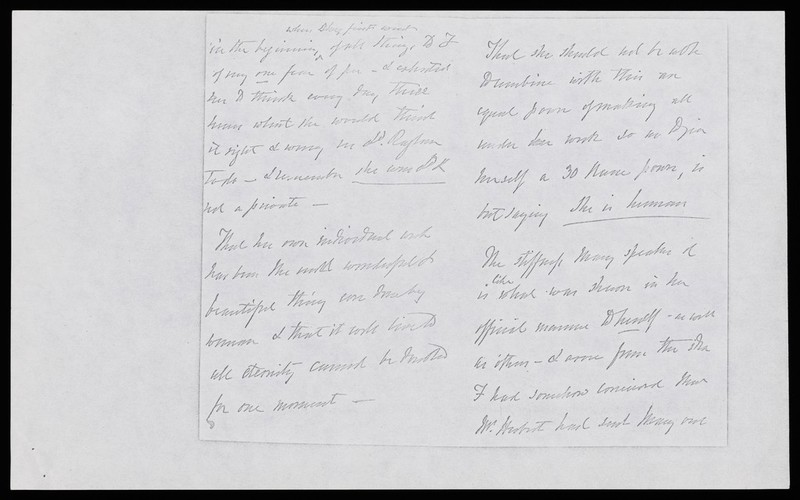 when they first went
in the beginning of all things, to F
of my one fear of her - I entreated
her to think every day three
hours what she would think
it right & wrong in Ld. Raglan
to do - & remember she was Ld R
not a private -
That her own individual work
has been the most wonderful &
beautiful thing ever done by
woman & that it will live to
all eternity cannot be doubted
for one moment -
That she should not be able
to combine with this an
equal power of making all
under her work so as to give
herself a 30 Nurse power, is
but saying she is human
The stiffness Mary speaks of
is like what was shewn in her
official manner to herself - as well
as others - & arose from the idea
F had somehow conceived that
Mr. Herbert had sent Mary out